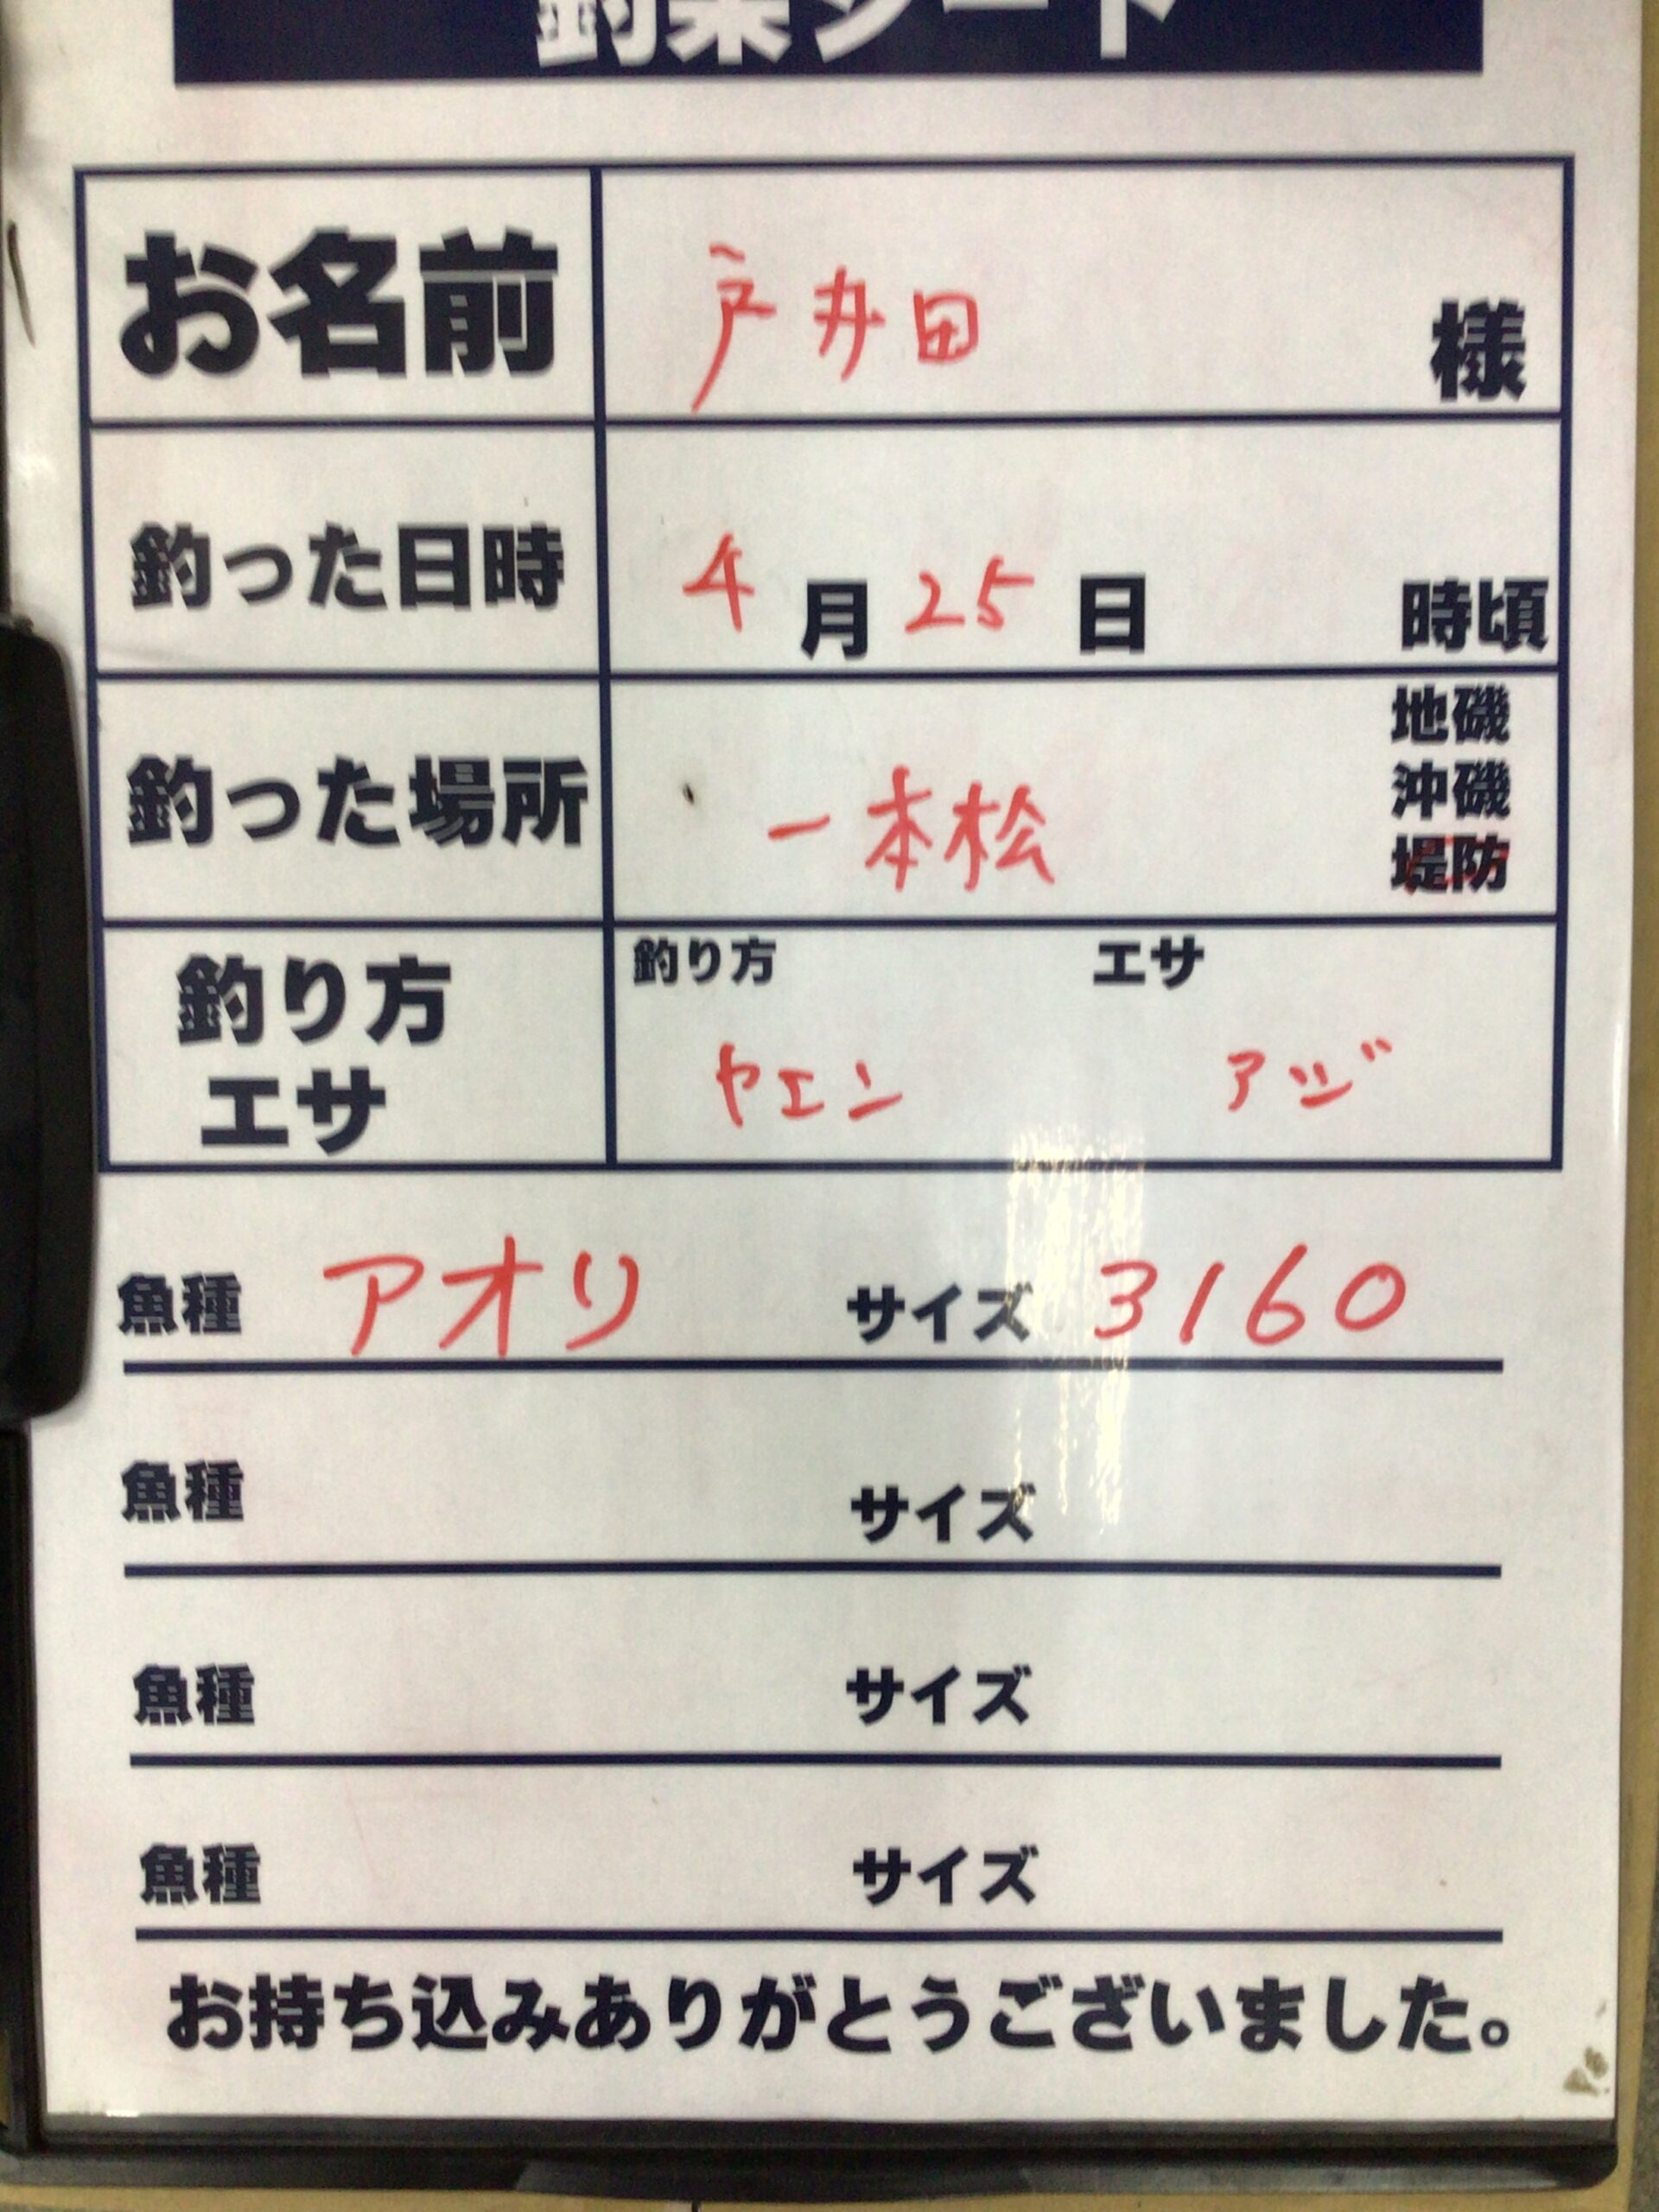 釣果シート
お名前 戸井田 様
釣った日時 4月25日 時頃
釣った場所 一本松 地磯 沖磯 堤防
釣り方 エサ
釣り方 ヤエン エサ アジ
魚種 アオリ サイズ 3160
魚種 サイズ
魚種 サイズ
魚種 サイズ
お持ち込みありがとうございました。